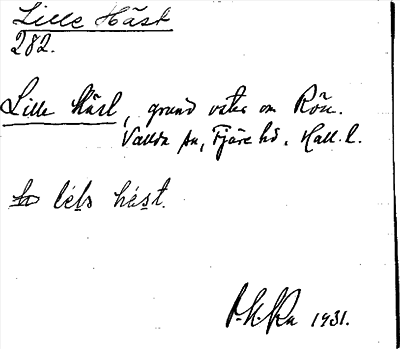 Lille Häst
282.
Lille Häst, grund väster om Rön.
Vallda sn, Fjäre hd. Hall. l.
lélɔ hést.
1931.